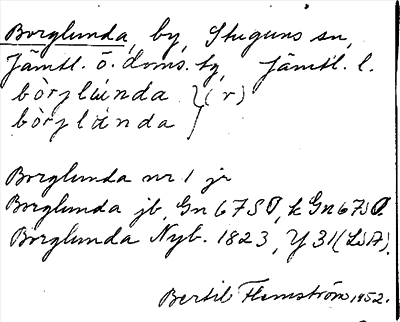 Borglunda, by, Stuguns sn,
Jämtl. ö. doms. tg, Jämtl. l.
bòrglúnda } (r)
bòrglánda
Borglunda nr 1 jr
Borglunda jb, Gn 67SO, k Gn 67SO.
Borglunda Nyb. 1823, Y31 (LSA).
Bertil Flemström 1952.